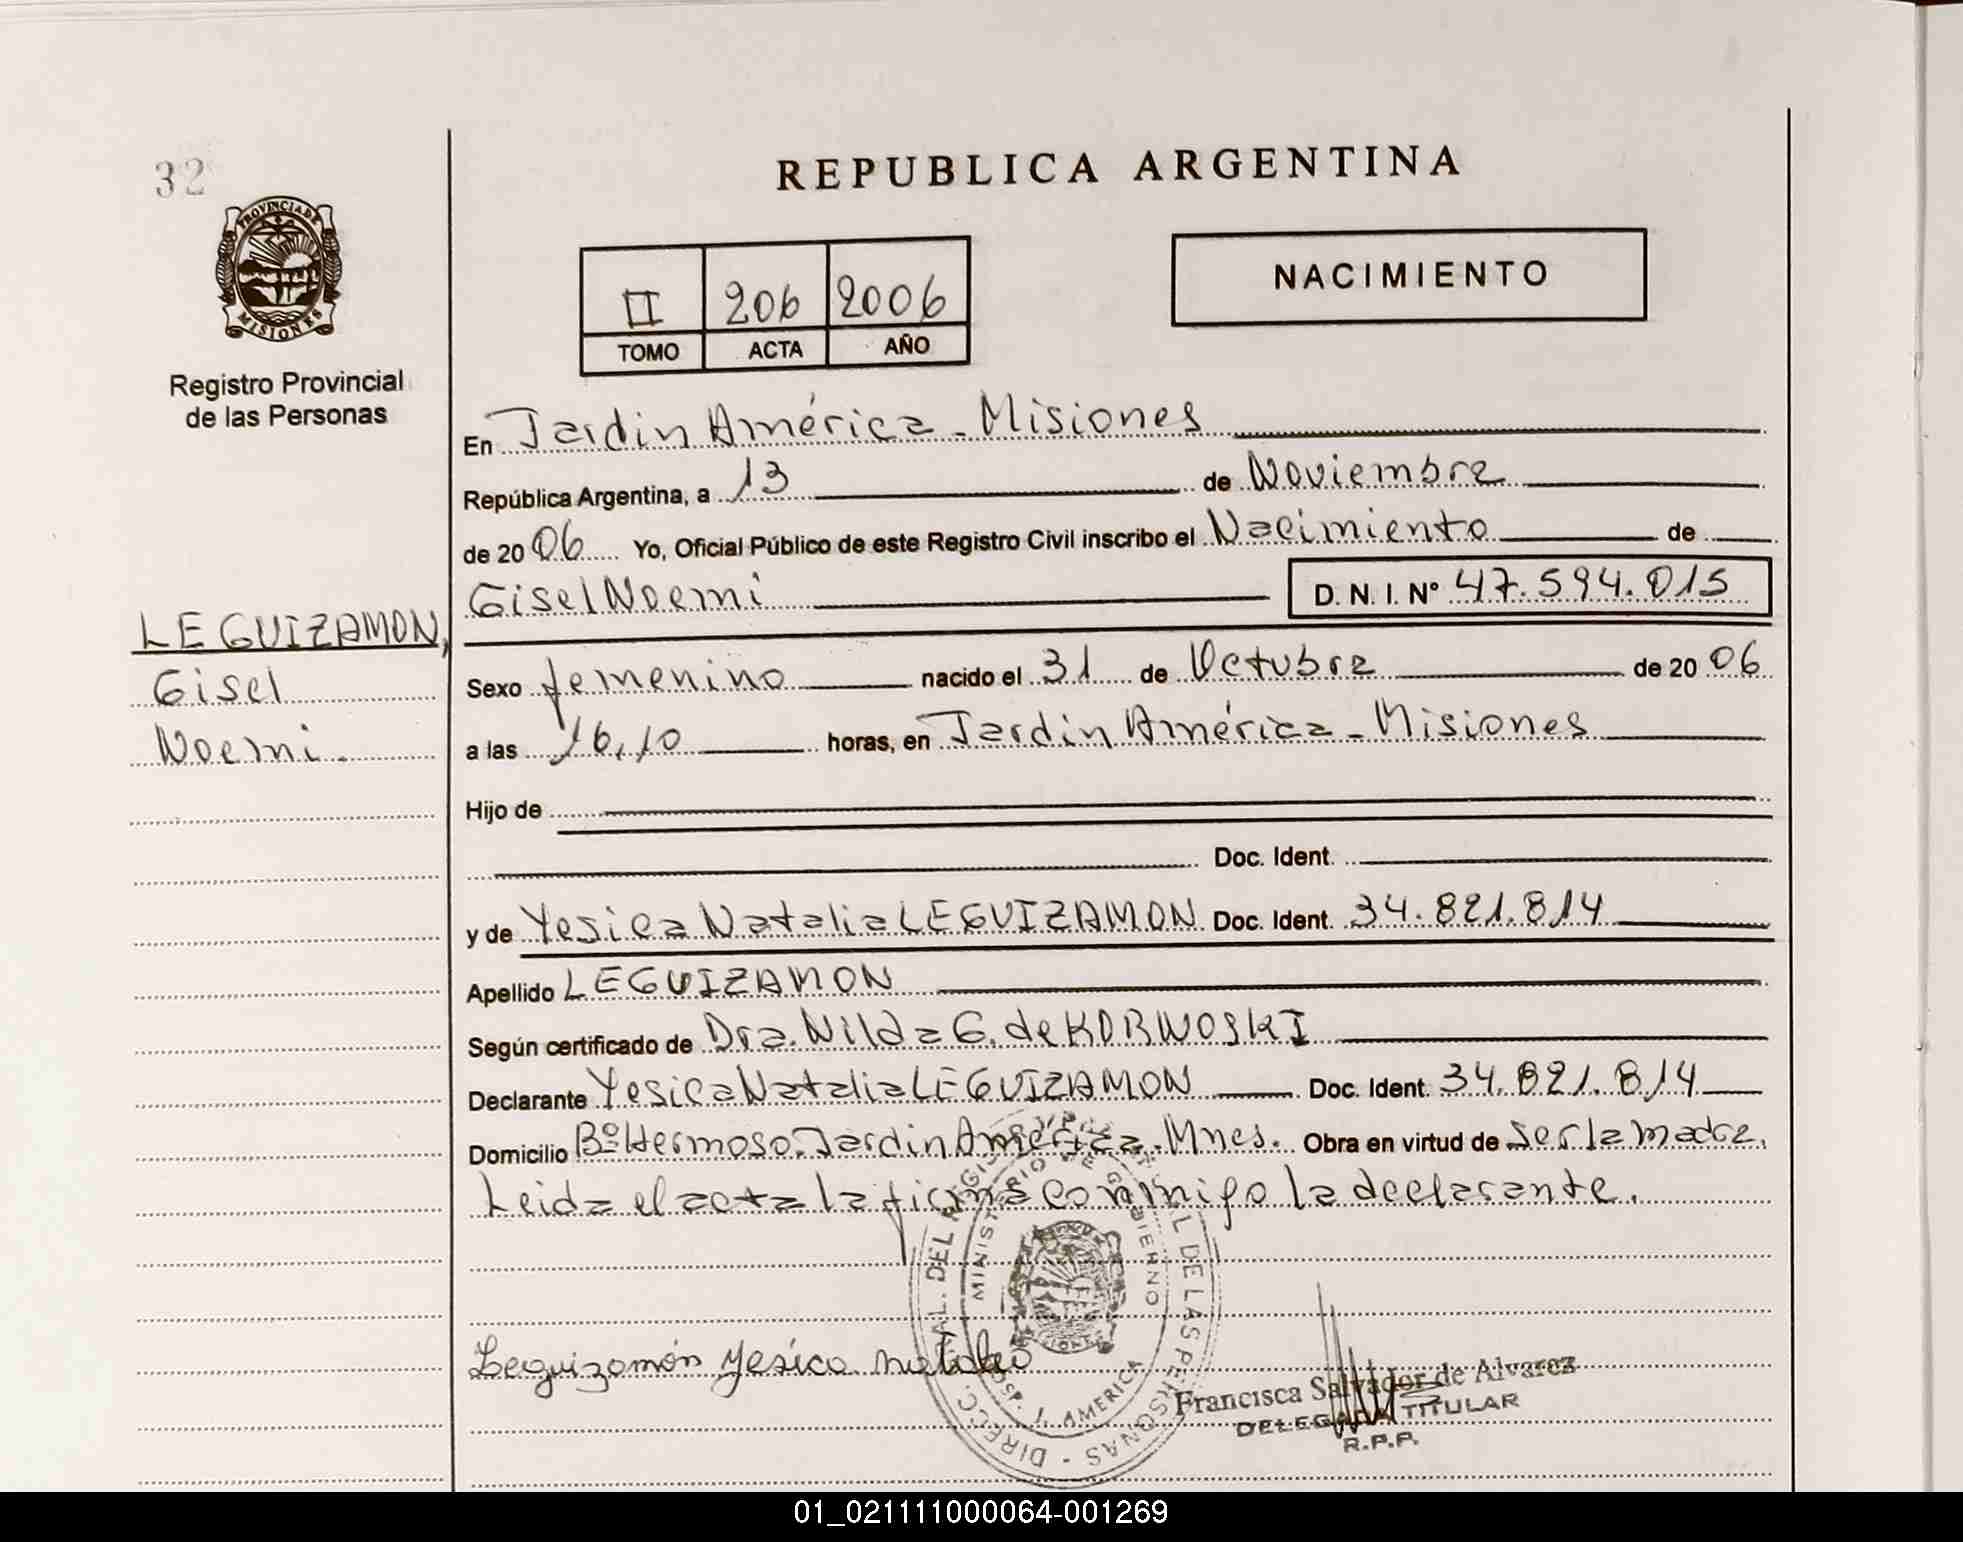 32
REPUBLICA ARGENTINA
PROVINCIA DE
MISIONES
Registro Provincial
de las Personas
II 206 2006
TOMO ACTA AÑO
NACIMIENTO
En Jardin América - Misiones
República Argentina, a 13 de Noviembre
de 20 06 Yo, Oficial Público de este Registro Civil inscribo el Nacimiento de
Gisel Noemi D. N. I. Nº 47.594.015
LEGUIZAMON,
Gisel
Noemi.
Sexo femenino nacido el 31 de Octubre de 20 06
a las 16,10 horas, en Jardin América - Misiones
Hijo de
Doc. Ident.
y de Yesica Natalia LEGUIZAMON Doc. Ident. 34.821.814
Apellido LEGUIZAMON
Según certificado de Dra. Nilda G. de KORWOSKI
Declarante Yesica Natalia LEGUIZAMON Doc. Ident. 34.821.814
Domicilio Bº Hermoso. Jardin América. Mnes. Obra en virtud de ser la madre.
Leida el acta la firma conmigo la declarante.
MINISTERIO DE GOBIERNO
DE LAS PERSONAS
AMERICA
Leguizamón Yesica natalia
Francisca Salvador de Alvarez
DELEGADA TITULAR
R.P.P.
01_021111000064-001269